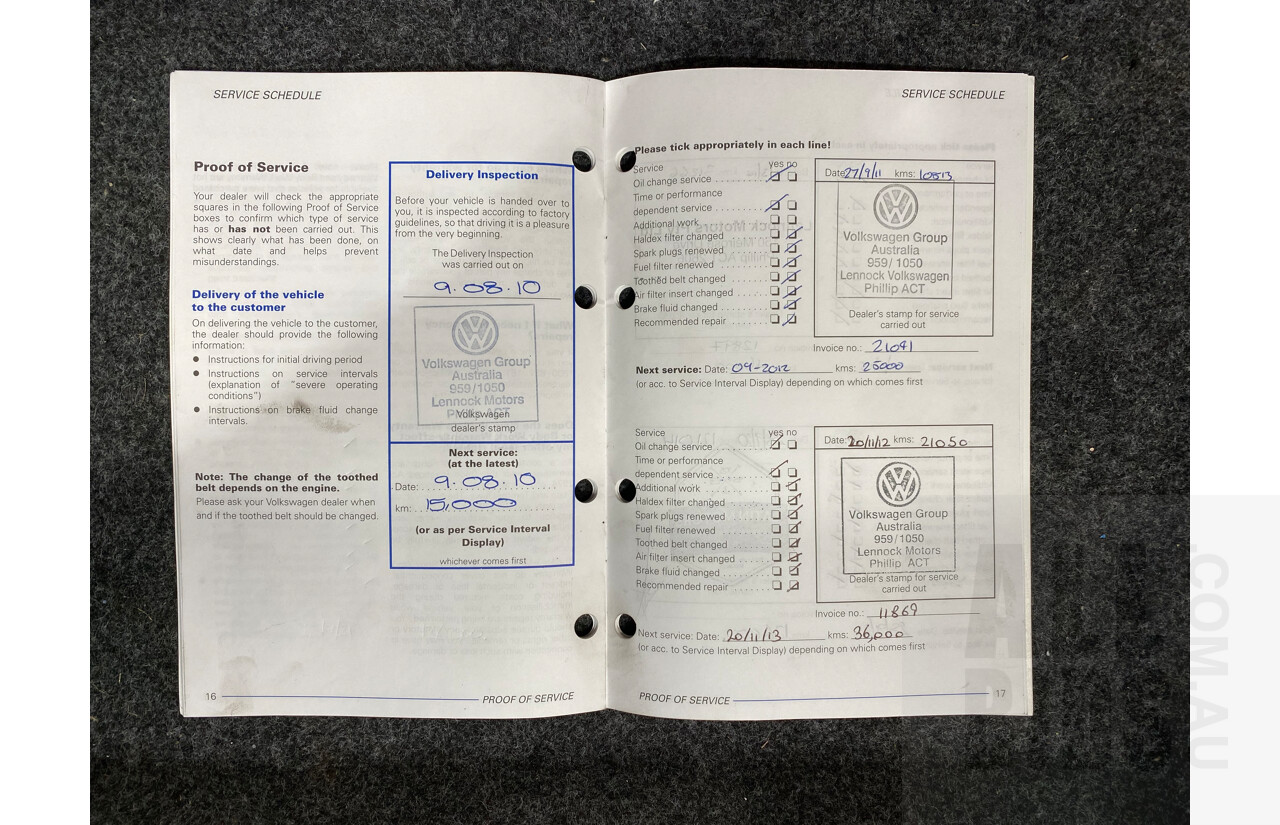 SERVICE SCHEDULE
Proof of Service
Your dealer will check the appropriate
squares in the following Proof of Service
boxes to confirm which type of service
has or has not been carried out. This
shows clearly what has been done, on
what date and helps prevent
misunderstandings.
Delivery of the vehicle
to the customer
On delivering the vehicle to the customer,
the dealer should provide the following
information:
● Instructions for initial driving period
● Instructions on service intervals
(explanation of "severe operating
conditions")
● Instructions on brake fluid change
intervals.
Note: The change of the toothed
belt depends on the engine.
Please ask your Volkswagen dealer when
and if the toothed belt should be changed.
Delivery Inspection
Before your vehicle is handed over to
you, it is inspected according to factory
guidelines, so that driving it is a pleasure
from the very beginning.
The Delivery Inspection
was carried out on
9.08.10
Volkswagen Group
Australia
959/1050
Lennock Motors
Phillip ACT
Volkswagen
dealer's stamp
Next service:
(at the latest)
Date: 9.08.10
km: 15,000
(or as per Service Interval
Display)
whichever comes first
16
PROOF OF SERVICE
SERVICE SCHEDULE
Please tick appropriately in each line!
Service yes no
Oil change service
Time or performance
dependent service
Additional work
Haldex filter changed
Spark plugs renewed
Fuel filter renewed
Toothed belt changed
Air filter insert changed
Brake fluid changed
Recommended repair
Date: 27/9/11 kms: 10513
Volkswagen Group
Australia
959/1050
Lennock Volkswagen
Phillip ACT
Dealer's stamp for service
carried out
Invoice no.: 21041
Next service: Date: 09-2012 kms: 25000
(or acc. to Service Interval Display) depending on which comes first
Service yes no
Oil change service
Time or performance
dependent service
Additional work
Haldex filter changed
Spark plugs renewed
Fuel filter renewed
Toothed belt changed
Air filter insert changed
Brake fluid changed
Recommended repair
Date: 20/11/12 kms: 21050
Volkswagen Group
Australia
959/1050
Lennock Motors
Phillip ACT
Dealer's stamp for service
carried out
Invoice no.: 11869
Next service: Date: 20/11/13 kms: 36,000
(or acc. to Service Interval Display) depending on which comes first
PROOF OF SERVICE
17
.COM.AU